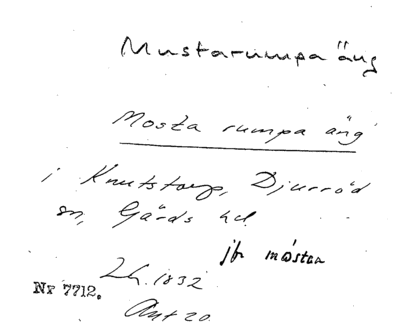 Mustarumpa äng
Mosta rumpa äng
i Knutstorp, Djurröd
sn, Gärds hd.
jfr möstaa
Lh. 1832
Nr 7712.
Akt 20.